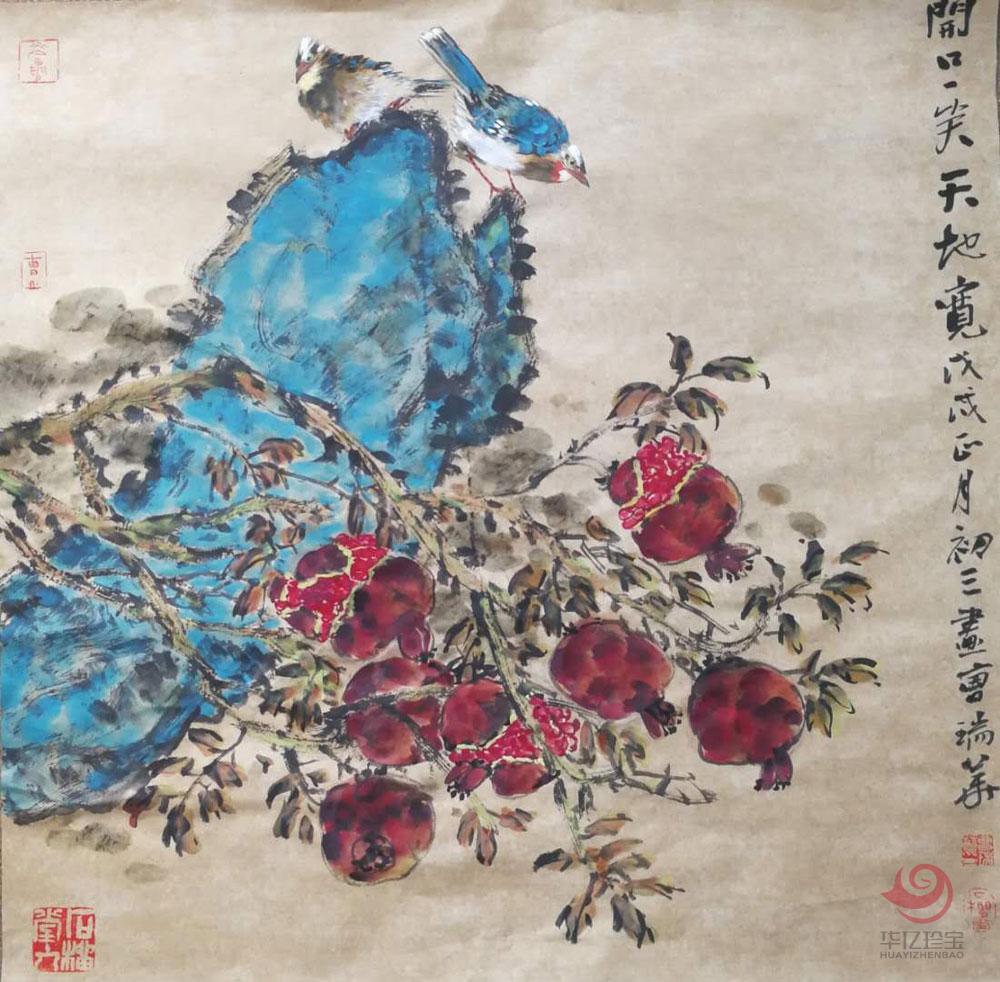 開口一笑天地寬戊戌正月初三畫曹瑞華
华亿珍宝
HUAYIZHENBAO